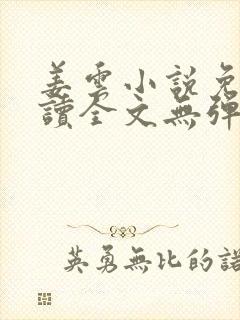 姜雲小說免
讀全文無彈
英勇無比的諾